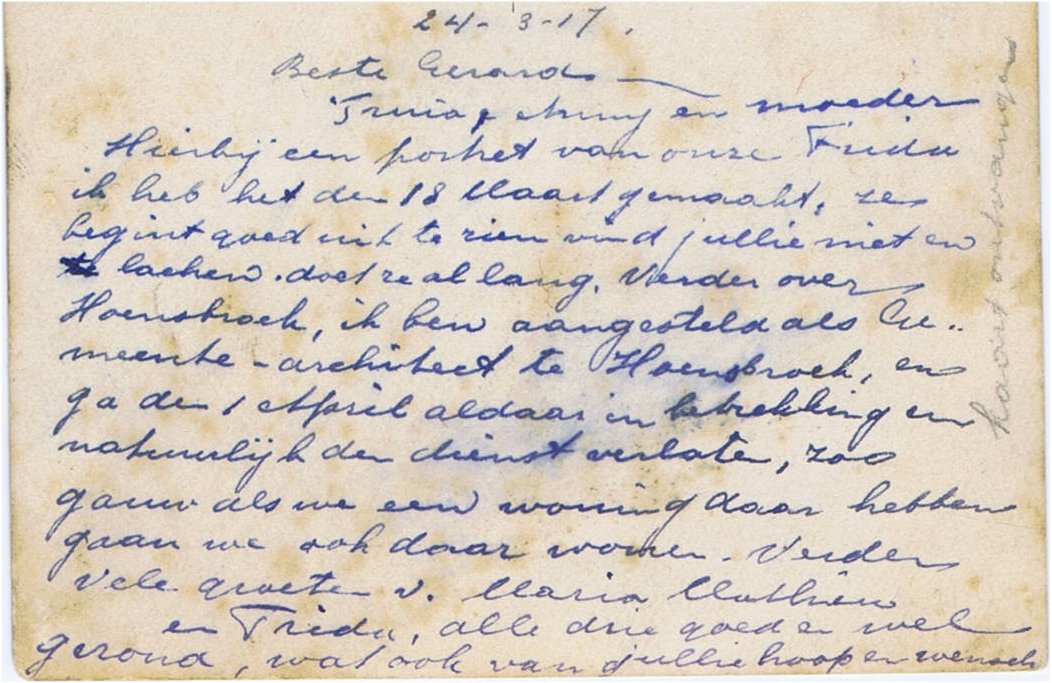 24-3-17.
Beste Gerard
Truia, Anny en moeder
Hierbij een portret van onze Frida
ik heb het den 18 Maart gemaakt, ze
begint goed uit te zien vind jullie niet en
lachen doet ze al lang. Verder over
Hoensbroek, ik ben aangesteld als Ge..
meente-architect te Hoensbroek, en
ga den 1 April aldaar in betrekking en
natuurlijk den dienst verlaten, zoo
gauw als we een woning daar hebben
gaan we ook daar wonen. Verder
vele groeten v. Maria Mathieu
en Frida, alle drie goed en wel
gezond, wat ook van jullie hoop en wensch
kaart ontvangen